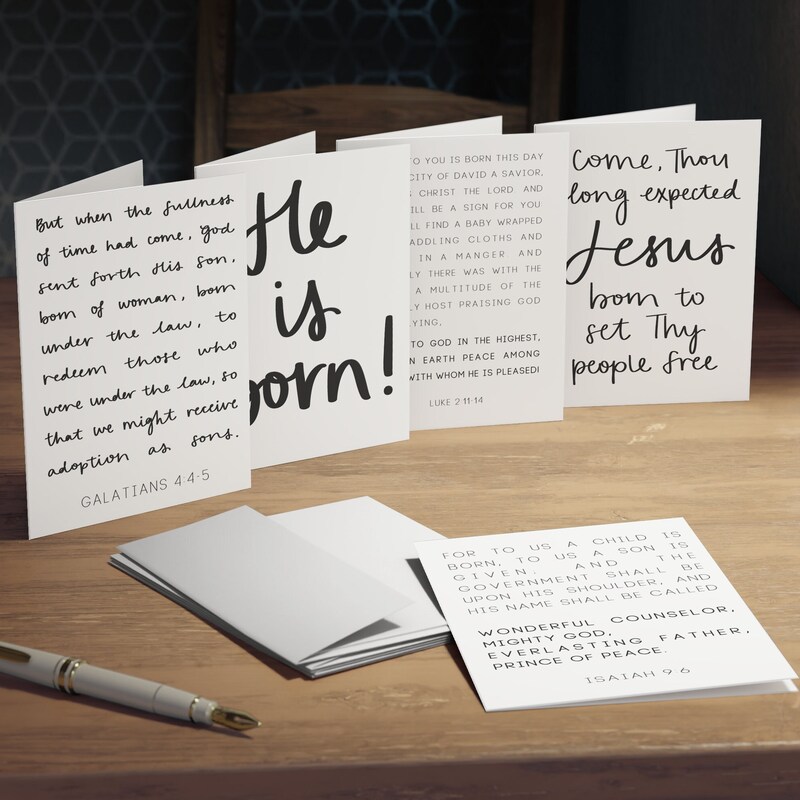 But when the fullness
of time had come, God
sent forth His son,
born of woman, born
under the law, to
redeem those who
were under the law, so
that we might receive
adoption as sons.
GALATIANS 4:4-5
He
is
born!
TO YOU IS BORN THIS DAY
CITY OF DAVID A SAVIOR,
CHRIST THE LORD AND
BE A SIGN FOR YOU
FIND A BABY WRAPPED
CLOTHS AND
IN A MANGER AND
THERE WAS WITH THE
A MULTITUDE OF THE
HOST PRAISING GOD
TO GOD IN THE HIGHEST,
EARTH PEACE AMONG
WITH WHOM HE IS PLEASED!
LUKE 2:11-14
Come, Thou
long expected
Jesus
born to
set Thy
people free
FOR TO US A CHILD IS
BORN, TO US A SON IS
GIVEN. AND THE
GOVERNMENT SHALL BE
UPON HIS SHOULDER, AND
HIS NAME SHALL BE CALLED
WONDERFUL COUNSELOR,
MIGHTY GOD,
EVERLASTING FATHER,
PRINCE OF PEACE.
ISAIAH 9:6